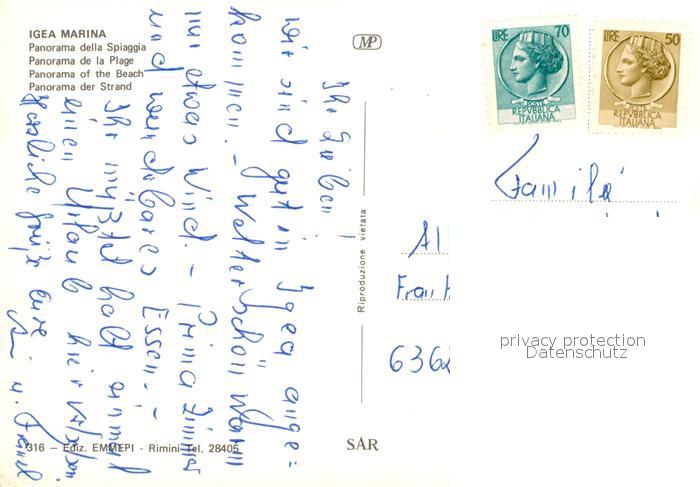 IGEA MARINA
Panorama della Spiaggia
Panorama de la Plage
Panorama of the Beach
Panorama der Strand
MP
LIRE 70
POSTE
REPVBBLICA
ITALIANA
LIRE 50
POSTE
REPVBBLICA
ITALIANA
Ihr Lieben!
wir sind gut in Igea ange=
kommen. - Wetter schön warm
nur etwas Wind. - Prima Zimmer
und wunderbares Essen. -
Ihr müßtet halt einmal
einen Urlaub hier
Herzliche Grüße eure
u.
Familie
Al
Fran
6362
Riproduzione vietata
privacy protection
Datenschutz
316 - Ediz. EMMEPI - Rimini Tel. 28405
SAR